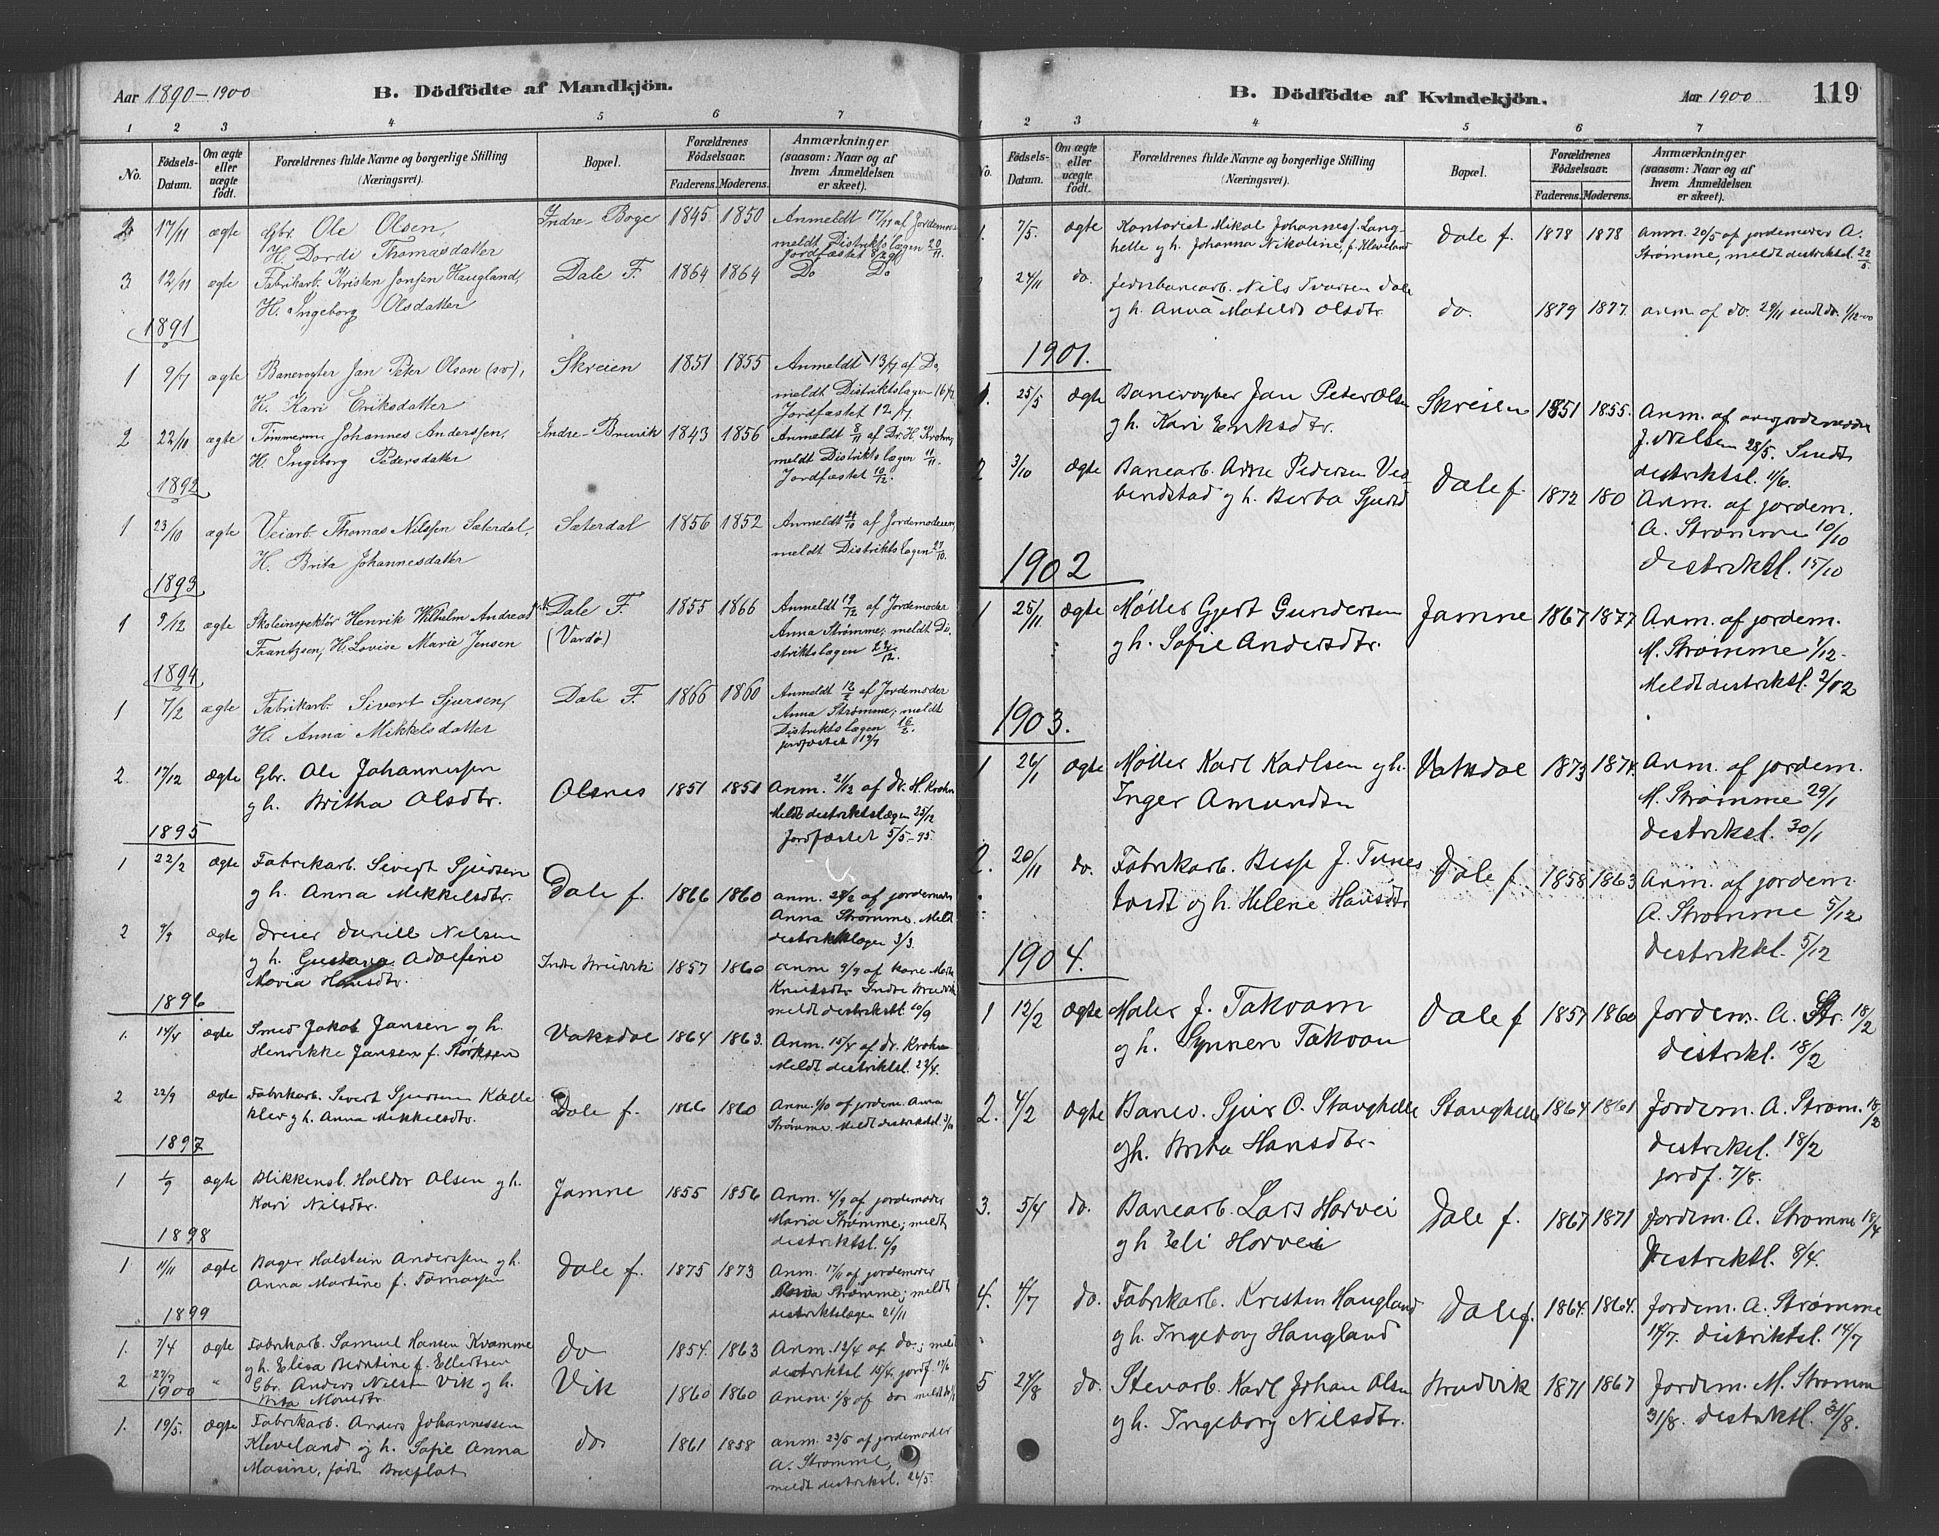 Aar 1890-1900
B. Dödfödte af Mandkjön.
1 2 3 4 5 6 7
No.
Födsels-Datum.
Om ægte eller uægte födt.
Forældrenes fulde Navne og borgerlige Stilling (Næringsvei).
Bopæl.
Forældrenes Födselsaar.
Faderens. Moderens.
Anmærkninger (saasom: Naar og af hvem Anmeldelsen er skeet).
2 17/11 ægte Gbr. Ole Olsen, Indre Boge 1845 1850 Anmeldt 17/11 af Jordemoder
H. Dordi Thomasdatter meldt Distriktslægen 20/11
Jordfæstet
3 12/11 ægte Fabrikarb. Kristen Jonsen Haugland, Dale F. 1864 1864 Do Do
H. Ingeborg Olsdatter
1891
1 9/7 ægte Banevogter Jan Peter Olson (sv), Skreien 1851 1855 Anmeldt 13/7 af Do,
H. Kari Eriksdatter meldt Distriktslægen 16/7
Jordfæstet 12/7
2 22/10 ægte Tømmerm. Johannes Anderssen, Indre-Bruvik 1843 1856 Anmeldt 8/11 af Dr. H. Krohn,
H. Ingeborg Pedersdatter meldt Distriktslægen 11/11
Jordfæstet 10/12
1892
1 23/10 ægte Veiarb. Thomas Nilssen Sæterdal, Sæterdal 1856 1852 Anmeldt 24/10 af Jordemoderen,
H. Brita Johannesdatter meldt Distriktslægen 27/10.
1893
1 9/12 ægte Skoleinspektør Henrik Wilhelm Andreas Dale F. 1855 1866 Anmeldt 19/12 af Jordemoder
Frantzsen, H. Lovise Marie Jensen (Vardø) Anna Strømme; meldt Distriktslægen 22/12.
1894
1 7/2 ægte Fabrikarb. Sivert Sjursen, Dale F. 1866 1860 Anmeldt 12/2 af Jordemoder
H. Anna Mikkelsdatter Anna Strømme; meldt
Distriktslægen 16/2
jordfæstet 19/7
2. 17/12 ægte Gbr. Ole Johannessen Olsnes 1851 1851 Anm. 21/12 af Dr. H. Krohn
og h. Britha Olsdtr. Meldt distriktslægen 25/12
Jordfæstet 5/5-95.
1895
1 22/2 ægte Fabrikarb. Sivert Sjursen
og h. Anna Mikkelsdtr. Dale f. 1866 1860 anm. 28/2 af jordemoder
Anna Strømme. Meldt
distriktslægen 3/3.
2 9/9 ægte Dreier Nilsen
og h. Gustava Adolfine Indre Bruvik 1857 1860 anm 9/9 af kone
Maria Hansdtr. Knutsdtr Indre Bruvik
meldt distriktsl. 10/9
1896
1. 14/4 ægte Smed Jakob Jansen og h. Vaksdal 1864 1863. Anm. 15/4 af dr. Krohn
Henrikke Jansen f. Meldt distriktsl. 22/4.
2 22/9 ægte Fabrikarb. Sivert Sjursen Dale f. 1866 1860 Anm. 1/10 af jordem. Anna
og h. Anna Mikkelsdtr. Strømme. Meldt distriktsl. 3/10
1897
1 1/9 ægte Blikkensl. Haldor Olsen og h. Jamne 1855 1856 Anm. 4/9 af jordemoder
Kari Nilsdtr. Maria Strømme; meldt
distriktsl. 6/9
1898
1 11/11 ægte Bager Halstein Anderssen og h. Dale f. 1875 1873 Anm. 17/11 af jordemoder
Anna Martine f. Tomassen Anna Strømme; meldt
distriktslægen 21/11
1899
1. 7/4 ægte Fabrikarb. Samuel Hansen Kvamme do 1854. 1863 Anm. 12/4 af do; meldt
og h. Elisa Berntine f. Ellertsen distriktsl 15/4 jordf. 17/6
2 " Gbr. Anders Nilsen Vik og h. Vik 1860 1860 anm. 2/8 af do; meldt
Brita Monsdtr.
1900
1. 19/5. ægte Fabrikarb. Anders Johannessen do 1861 1858 anm. 23/5 af jordemoder
Kleveland og h. Sofie Anna A. Strømme,
Masine, født meldt distriktsl. 26/5.
B. Dödfödte af Kvindekjön.
Aar 1900 119
1 2 3 4 5 6 7
No.
Födsels-Datum.
Om ægte eller uægte födt.
Forældrenes fulde Navne og borgerlige Stilling (Næringsvei).
Bopæl.
Forældrenes Födselsaar.
Faderens. Moderens.
Anmærkninger (saasom: Naar og af hvem Anmeldelsen er skeet).
1. 7/5. ægte Kontorist Mikal Johannes. Langhelle og h. Johanna Nikoline, f. Kleveland Dale f. 1878 1878 anm. 20/5 af jordemoder A.
Strømme, meldt distriktsl. 22/5.
2 24/11 do. Jernbanearb. Nils Ivarsen Dale
og h. Anna Matilde Olsdtr. do. 1879 1877. anm. af do. 29/11 sendt dr. 1/12-00
1901.
1. 25/5 ægte Banevogter Jan Peter Olsen Skreien 1851 1855. Anm. af jordemoder
og h. Kari Eriksdtr. J. Nilsen 28/5. Sendt
distriktsl. 1/6.
2 3/10 ægte Banearb. Arne Pedersen Dale f. 1872 180 Anm. af jordem.
og h. Berta A. Strømme 10/10
distriktsl. 15/10
1902
1 25/11 ægte Møller Gjert Gundersen Jamne 1867 1877 Anm. af jordem.
og h. Sofie Andersdtr. M. Strømme 1/12.
Meldt distriktsl. 2/12
1903.
1 26/1 ægte Møller Karl Karlsen og h. Vaksdal 1873 1874. Anm. af jordem.
Inger Amundsen M. Strømme 29/1
distriktsl. 30/1
2. 20/11 do. Fabrikarb. J. Dale f 1858 1863 Anm. af jordem
og h. Helene Hansdtr A. Strømme 5/12
distriktsl. 5/12
1904.
1 12/2 ægte Maler J. Takvam Dale f 1857 1860 Jordem. A. Str. 18/2
og h. Synneve Takvam distriktl. 18/2
2. 4/2 ægte Banev. Sjur O. Stanghelle Stanghelle 1864 1861 Jordem. A. Strøm. 18/2
og h. Brita Hansdtr. distriktsl. 18/2
jordf. 7/8.
3. 5/4 do. Banearb. Lars Horvei Dale f. 1867 1871 Jordem. A. Strømme
og h Eli Horvei Distriktsl. 8/4.
4. 4/7 do. Fabrikarb. Kristen Haugland Dale f. 1864. 1864. Jordem. A. Strømme
og h. Ingeborg Haugland 14/7. distriktsl. 14/7
5 24/8 do. Stenarb. Karl Johan Olsen Bruvik 1871 1867 Jordem. M. Strømme
og h. Ingeborg Nilsdtr. 31/8. distriktsl. 31/8.